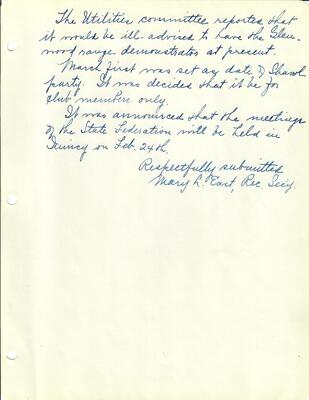 The Utilities committee reported that
it would be ill-advised to have the Glen-
wood range demonstrators at present.
March first was set as date of
party. It was decided that it be for
club member only.
It was announced that the meetings
of the State Federation will be held in
Quincy on Feb. 24th.
Respectfully submitted
Mary L. East, Rec. Sec'y.